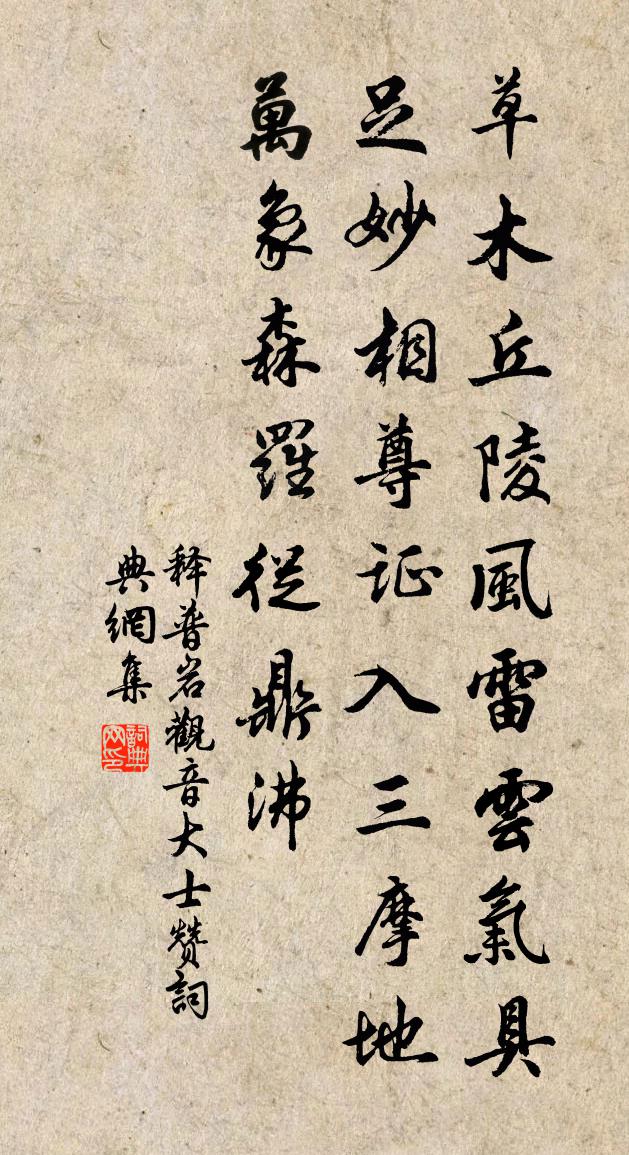 草木丘陵風雷雲氣具
足妙相尊证入三摩地
萬象森羅從鼎沸
释普岩觀音大士赞詞
典網集
詞典網印